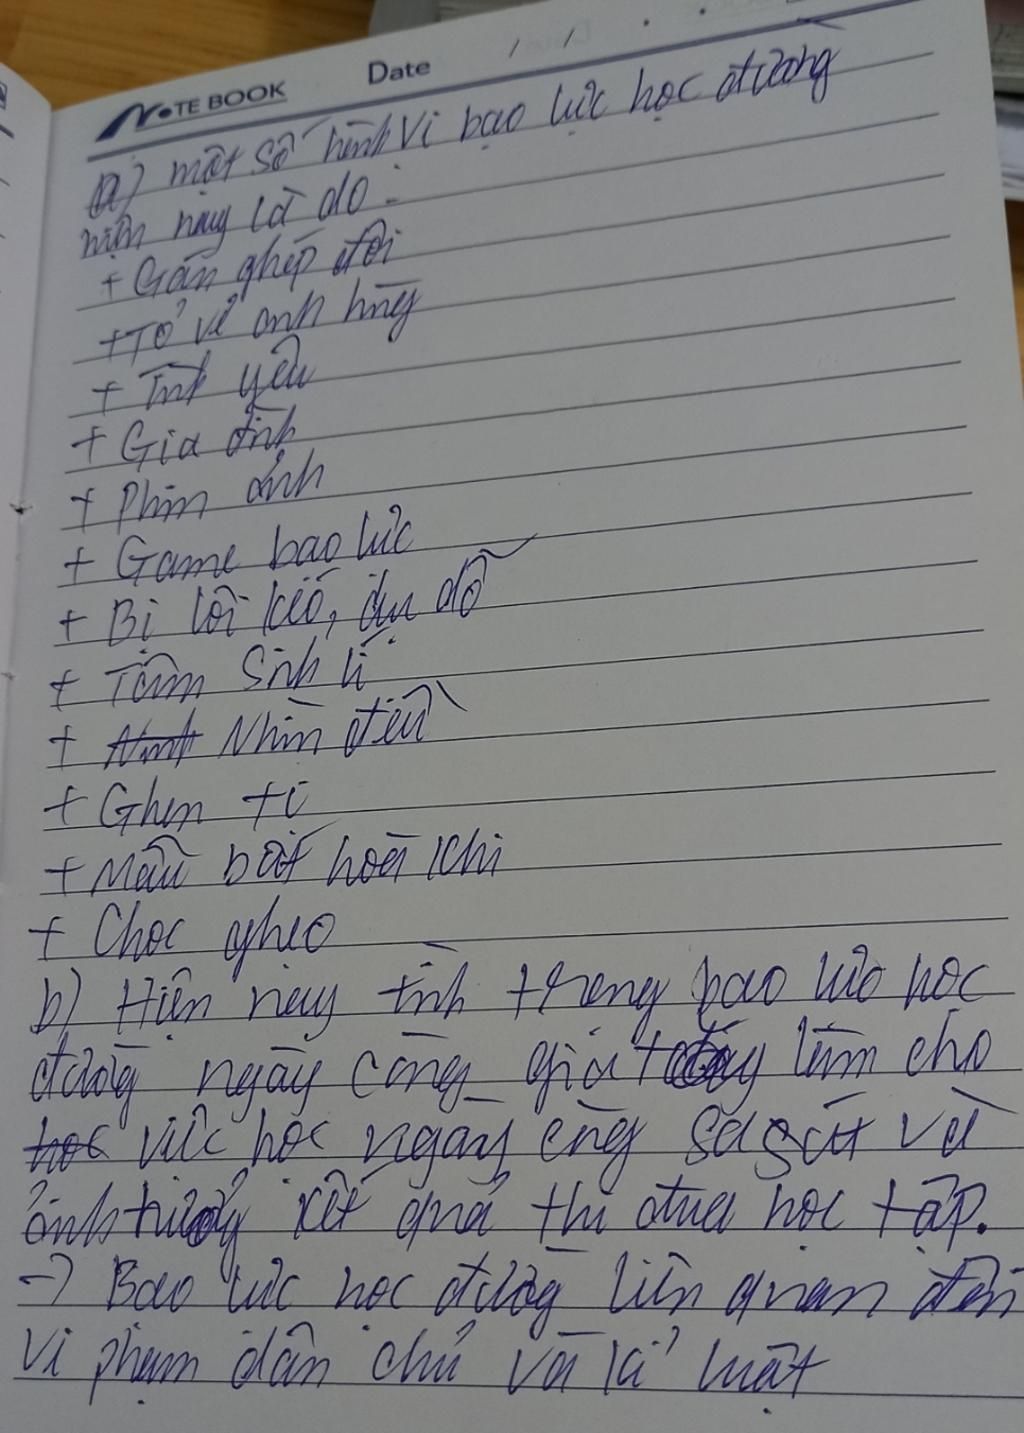 NOTE BOOK Date / /
a) một số hình vi bạo lực học đường
hiện nay là do :
+ Gán ghép đôi
+ Tỏ vẻ anh hùng
+ Tình yêu
+ Gia đình
+ Phim ảnh
+ Game bạo lực
+ Bị lôi kéo, dụ dỗ
+ Tâm Sinh lí
+ Nhìn đểu
+ Ghen tị
+ Mâu bất hoà khi
+ Chọc ghẹo
b) Hiện nay tình trạng bạo lực học
đường ngày càng gia tăng làm cho
việc học ngày càng sa sút và
ảnh hưởng kết quả thi đua học tập.
-> Bạo lực học đường liên quan đến
vi phạm dân chủ và kỉ luật